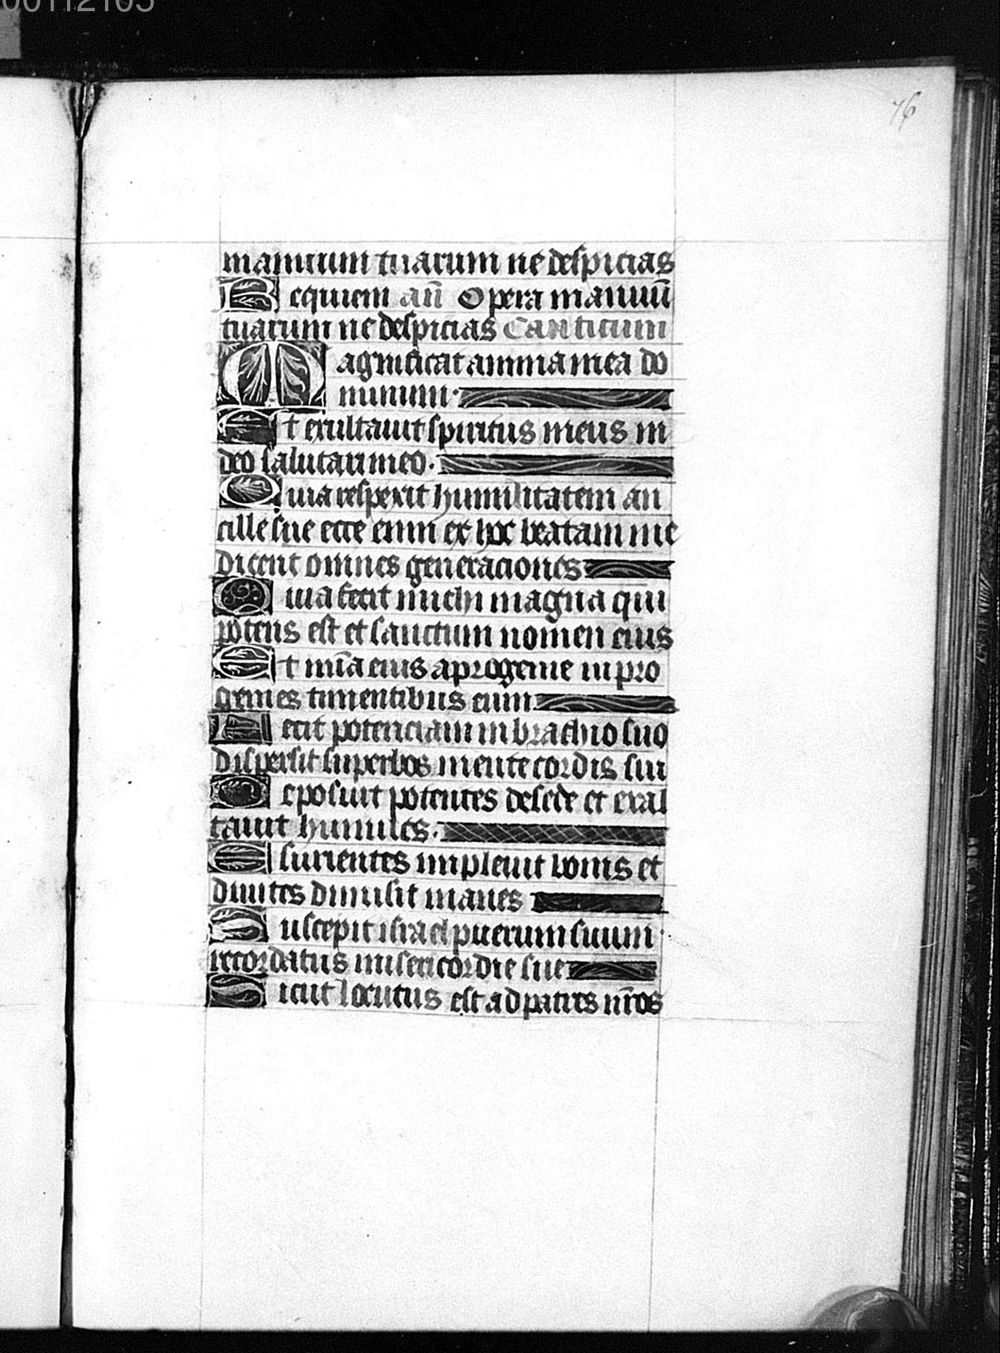 00112105
76
manuum tuarum ne despicias
Requiem an̄ Opera manuū
tuarum ne despicias Canticum
Magnificat anima mea do
minum.
Et exultavit spiritus meus in
deo salutari meo.
Quia respexit humilitatem an
cille sue ecce enim ex hoc beatam me
dicent omnes generaciones
Quia fecit michi magna qui
potens est et sanctum nomen eius
Et mīa eius a progenie in pro
genies timentibus eum
Fecit potenciam in brachio suo
dispersit superbos mente cordis sui
Deposuit potentes de sede et exal
tavit humiles.
Esurientes implevit bonis et
divites dimisit inanes
Suscepit israel puerum suum
recordatus misericordie sue
Sicut locutus est ad patres nr̄os